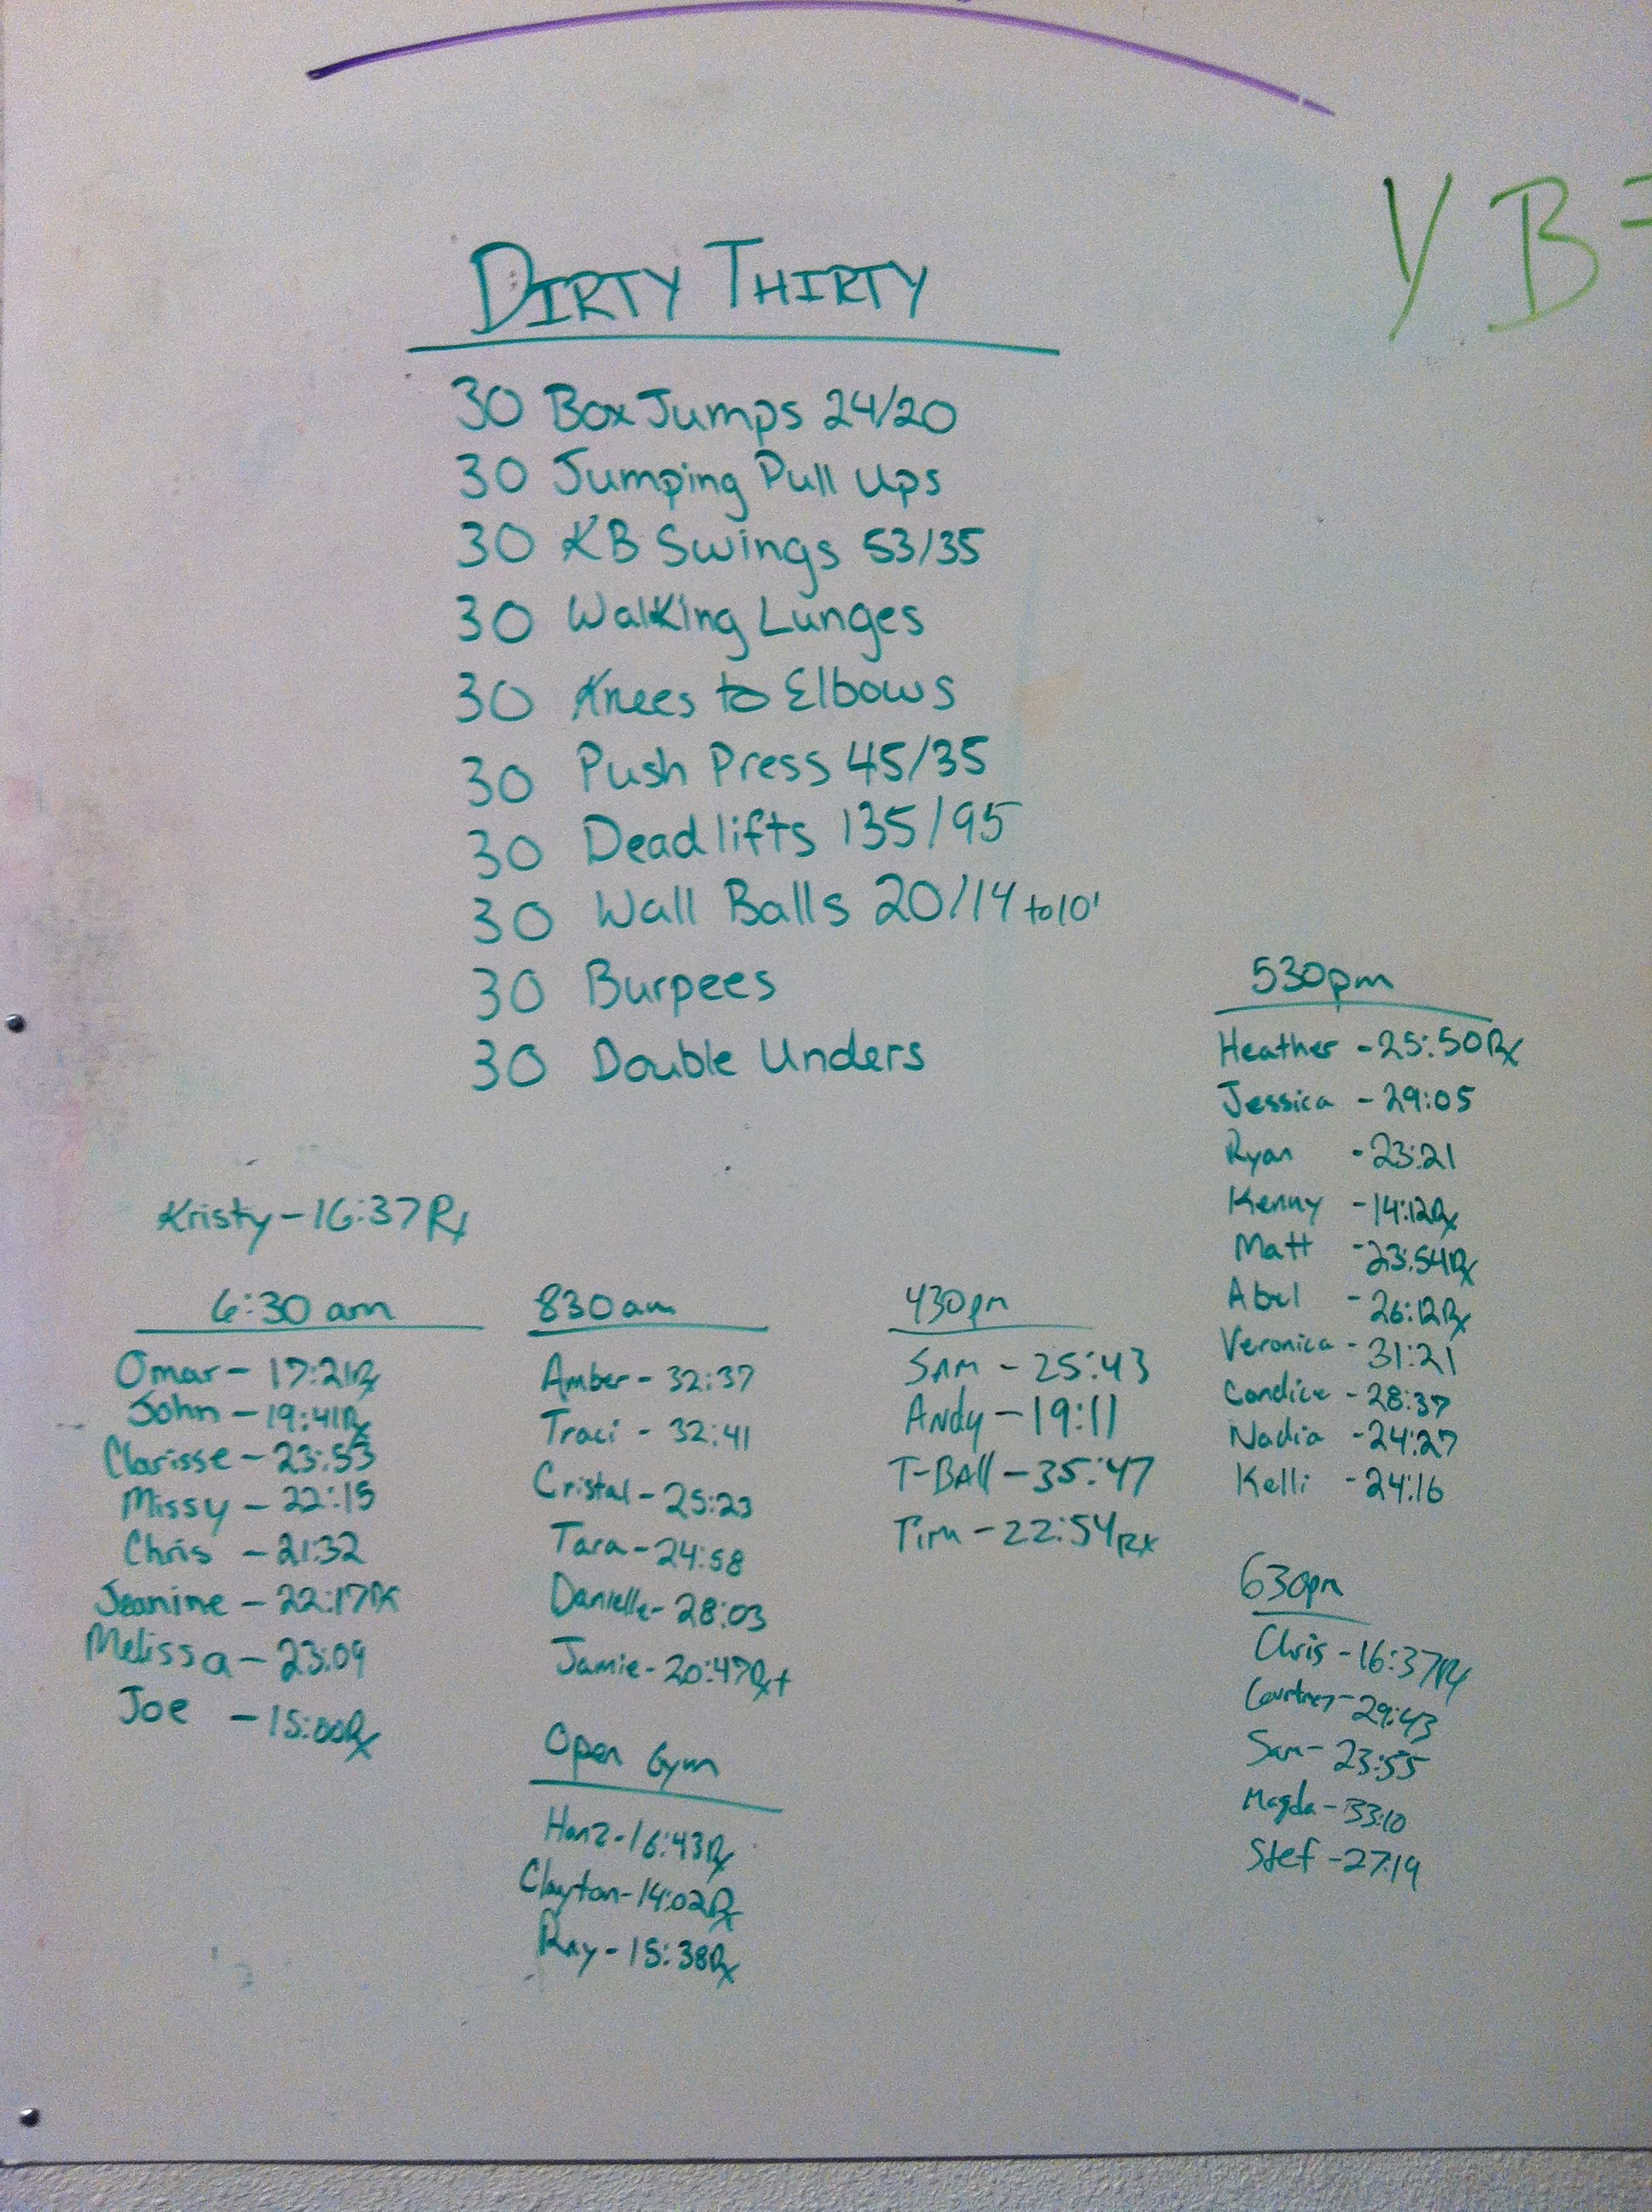 Y B =
DIRTY THIRTY
30 Box Jumps 24/20
30 Jumping Pull Ups
30 KB Swings 53/35
30 Walking Lunges
30 Knees to Elbows
30 Push Press 45/35
30 Deadlifts 135/95
30 Wall Balls 20/14 to 10'
30 Burpees
30 Double Unders
Kristy - 16:37 Rx
6:30 am
Omar - 17:21 Rx
John - 19:41 Rx
Clarisse - 23:53
Missy - 22:15
Chris - 21:32
Jeanine - 22:17 Rx
Melissa - 23:09
Joe - 15:00 Rx
830 am
Amber - 32:37
Traci - 32:41
Cristal - 25:23
Tara - 24:58
Danielle - 28:03
Jamie - 20:47 Rx+
Open Gym
Hanz - 16:43 Rx
Clayton - 14:02 Rx
Ray - 15:38 Rx
430pm
SAM - 25:43
Andy - 19:11
T-BAll - 35:47
Tim - 22:54 Rx
530pm
Heather - 25:50 Rx
Jessica - 29:05
Ryan - 23:21
Kenny - 14:12 Rx
Matt - 23:54 Rx
Abel - 26:12 Rx
Veronica - 31:21
Candice - 28:37
Nadia - 24:27
Kelli - 24:16
630pm
Chris - 16:37 Rx
Courtney - 29:43
Sam - 23:55
Magda - 33:10
Stef - 27:19